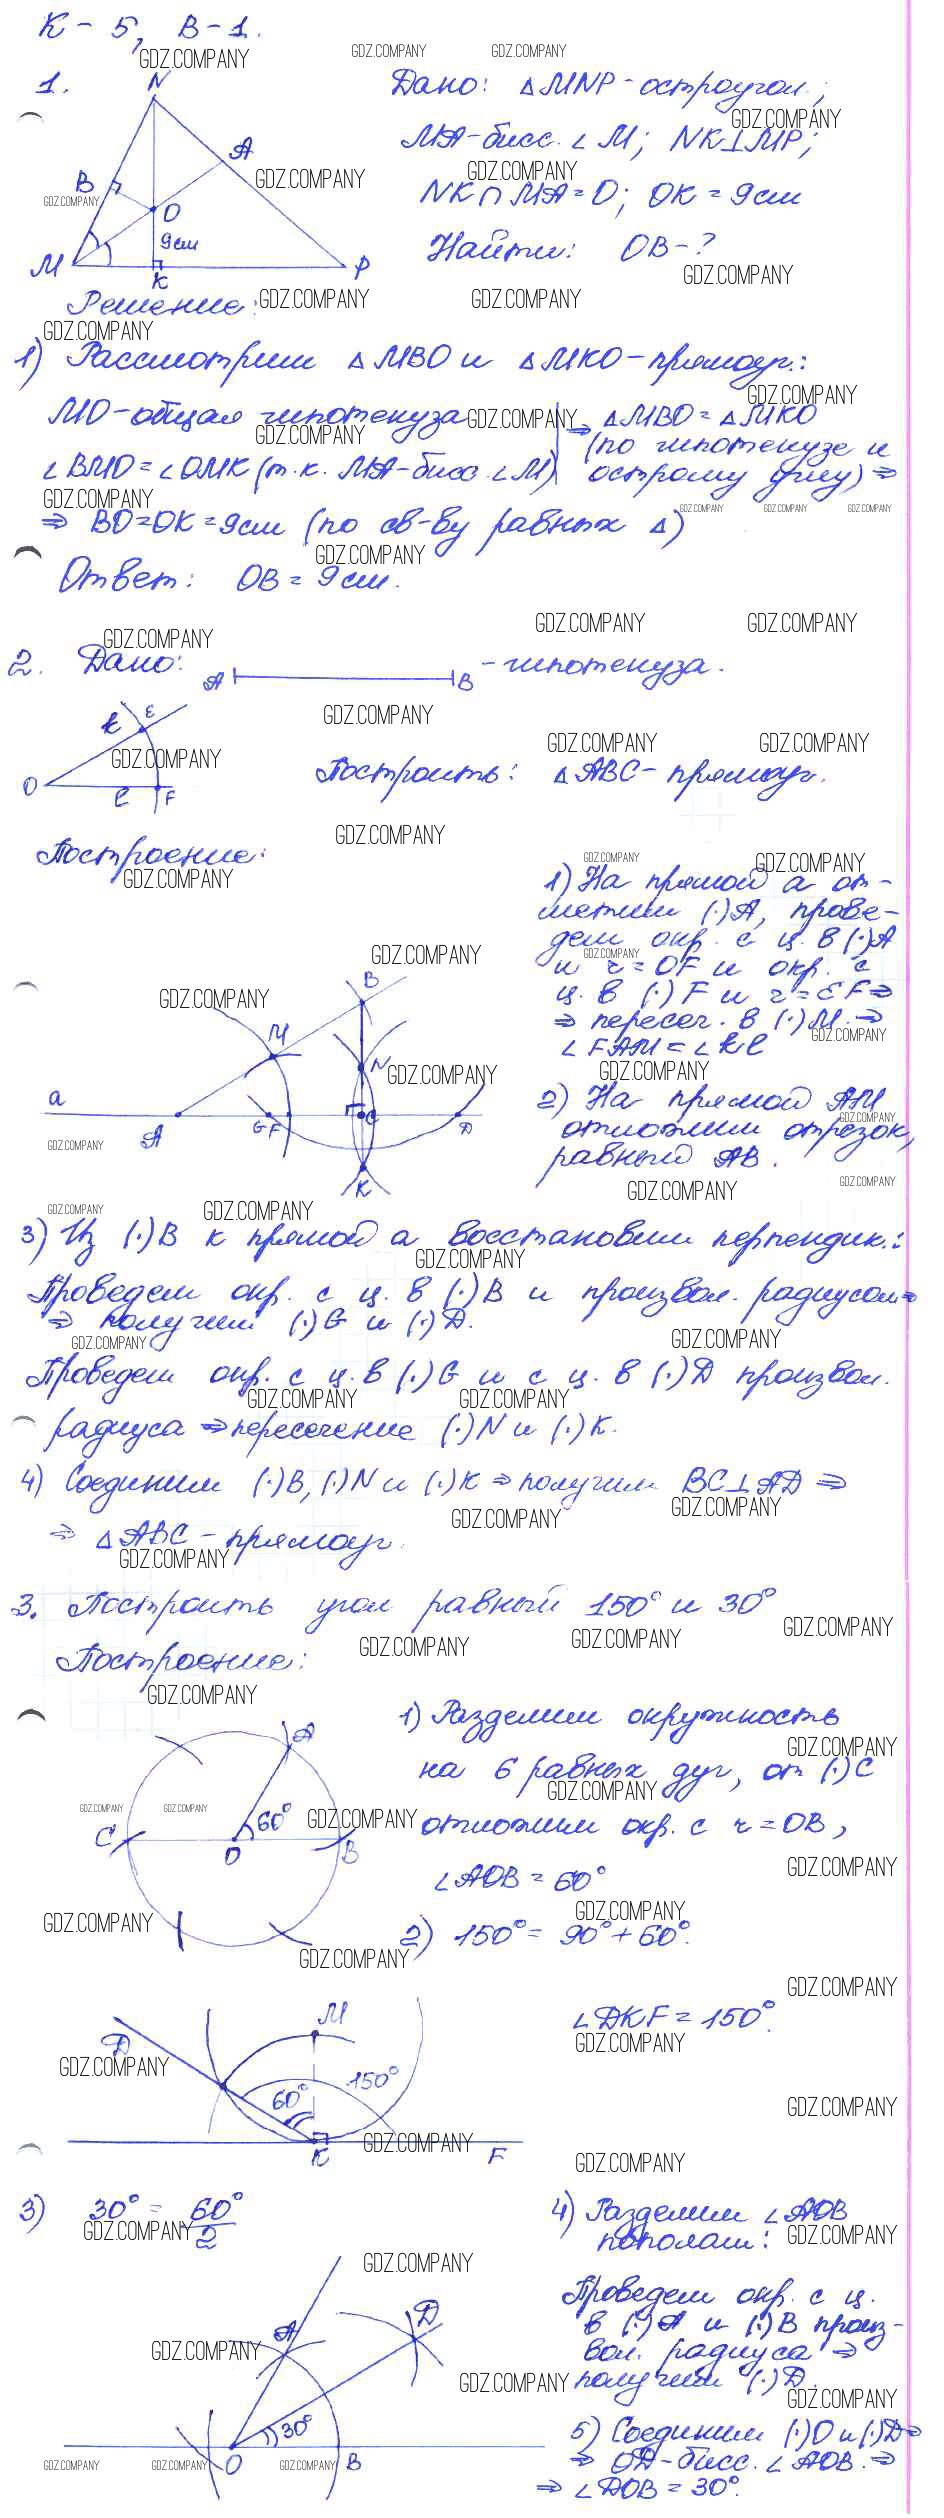 К - 5, В - 1.
1.
Дано: △MNP - остроугол.;
MA - бисс. ∠M; NK⊥MP;
NK∩MA = O; OK = 9см
Найти: OB - ?
N
A
B
O
9см
M
K
P
Решение:
1) Рассмотрим △MBO и △MKO - прямоуг.:
MO - общая гипотенуза
∠BMO = ∠OMK (т.к. MA - бисс. ∠M)
⇒ △MBO = △MKO
(по гипотенузе и
острому углу) ⇒
⇒ BO = OK = 9см (по св-ву равных △)
Ответ: OB = 9 см.
2. Дано:
A
B
- гипотенуза.
k
E
O
ℓ
F
Построить: △ABC - прямоуг.
Построение:
1) На прямой a от-
метим (·)A, прове-
дем окр. с ц. в (·)A
и r = OF и окр. с
ц. в (·)F и r = EF ⇒
⇒ пересеч. в (·)M. ⇒
∠FAM = ∠kℓ
B
M
N
a
A
G
F
C
D
K
2) На прямой AM
отложим отрезок,
равный AB.
3) Из (·)B к прямой a восстановим перпендик.:
Проведем окр. с ц. в (·)B и произвол. радиусом ⇒
⇒ получим (·)G и (·)D.
Проведем окр. с ц. в (·)G и с ц. в (·)D произвол.
радиуса ⇒ пересечение (·)N и (·)K.
4) Соединим (·)B, (·)N и (·)K ⇒ получим BC⊥AD ⇒
⇒ △ABC - прямоуг.
3. Построить угол равный 150° и 30°
Построение:
1) Разделим окружность
на 6 равных дуг, от (·)C
отложим окр. с r = OB,
∠AOB = 60°
A
60°
C
O
B
2) 150° = 90° + 60°.
∠DKF = 150°.
M
D
60°
150°
K
F
3) 30° = 60°/2
4) Разделим ∠AOB
пополам:
Проведем окр. с ц.
в (·)A и (·)B произ-
вол. радиуса ⇒
получим (·)D.
5) Соединим (·)O и (·)D ⇒
⇒ OD - бисс. ∠AOB. ⇒
⇒ ∠DOB = 30°.
A
D
30°
O
B
GDZ.COMPANY